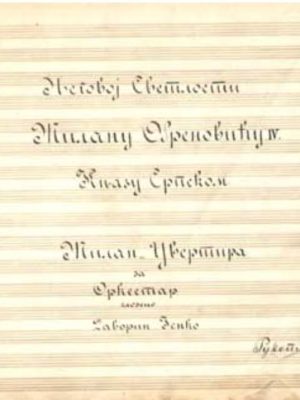 Његовој Светлости
Милану Обреновићу IV.
Књазу Српском
Милан-Увертира
за
Оркестар
Даворин Јенко